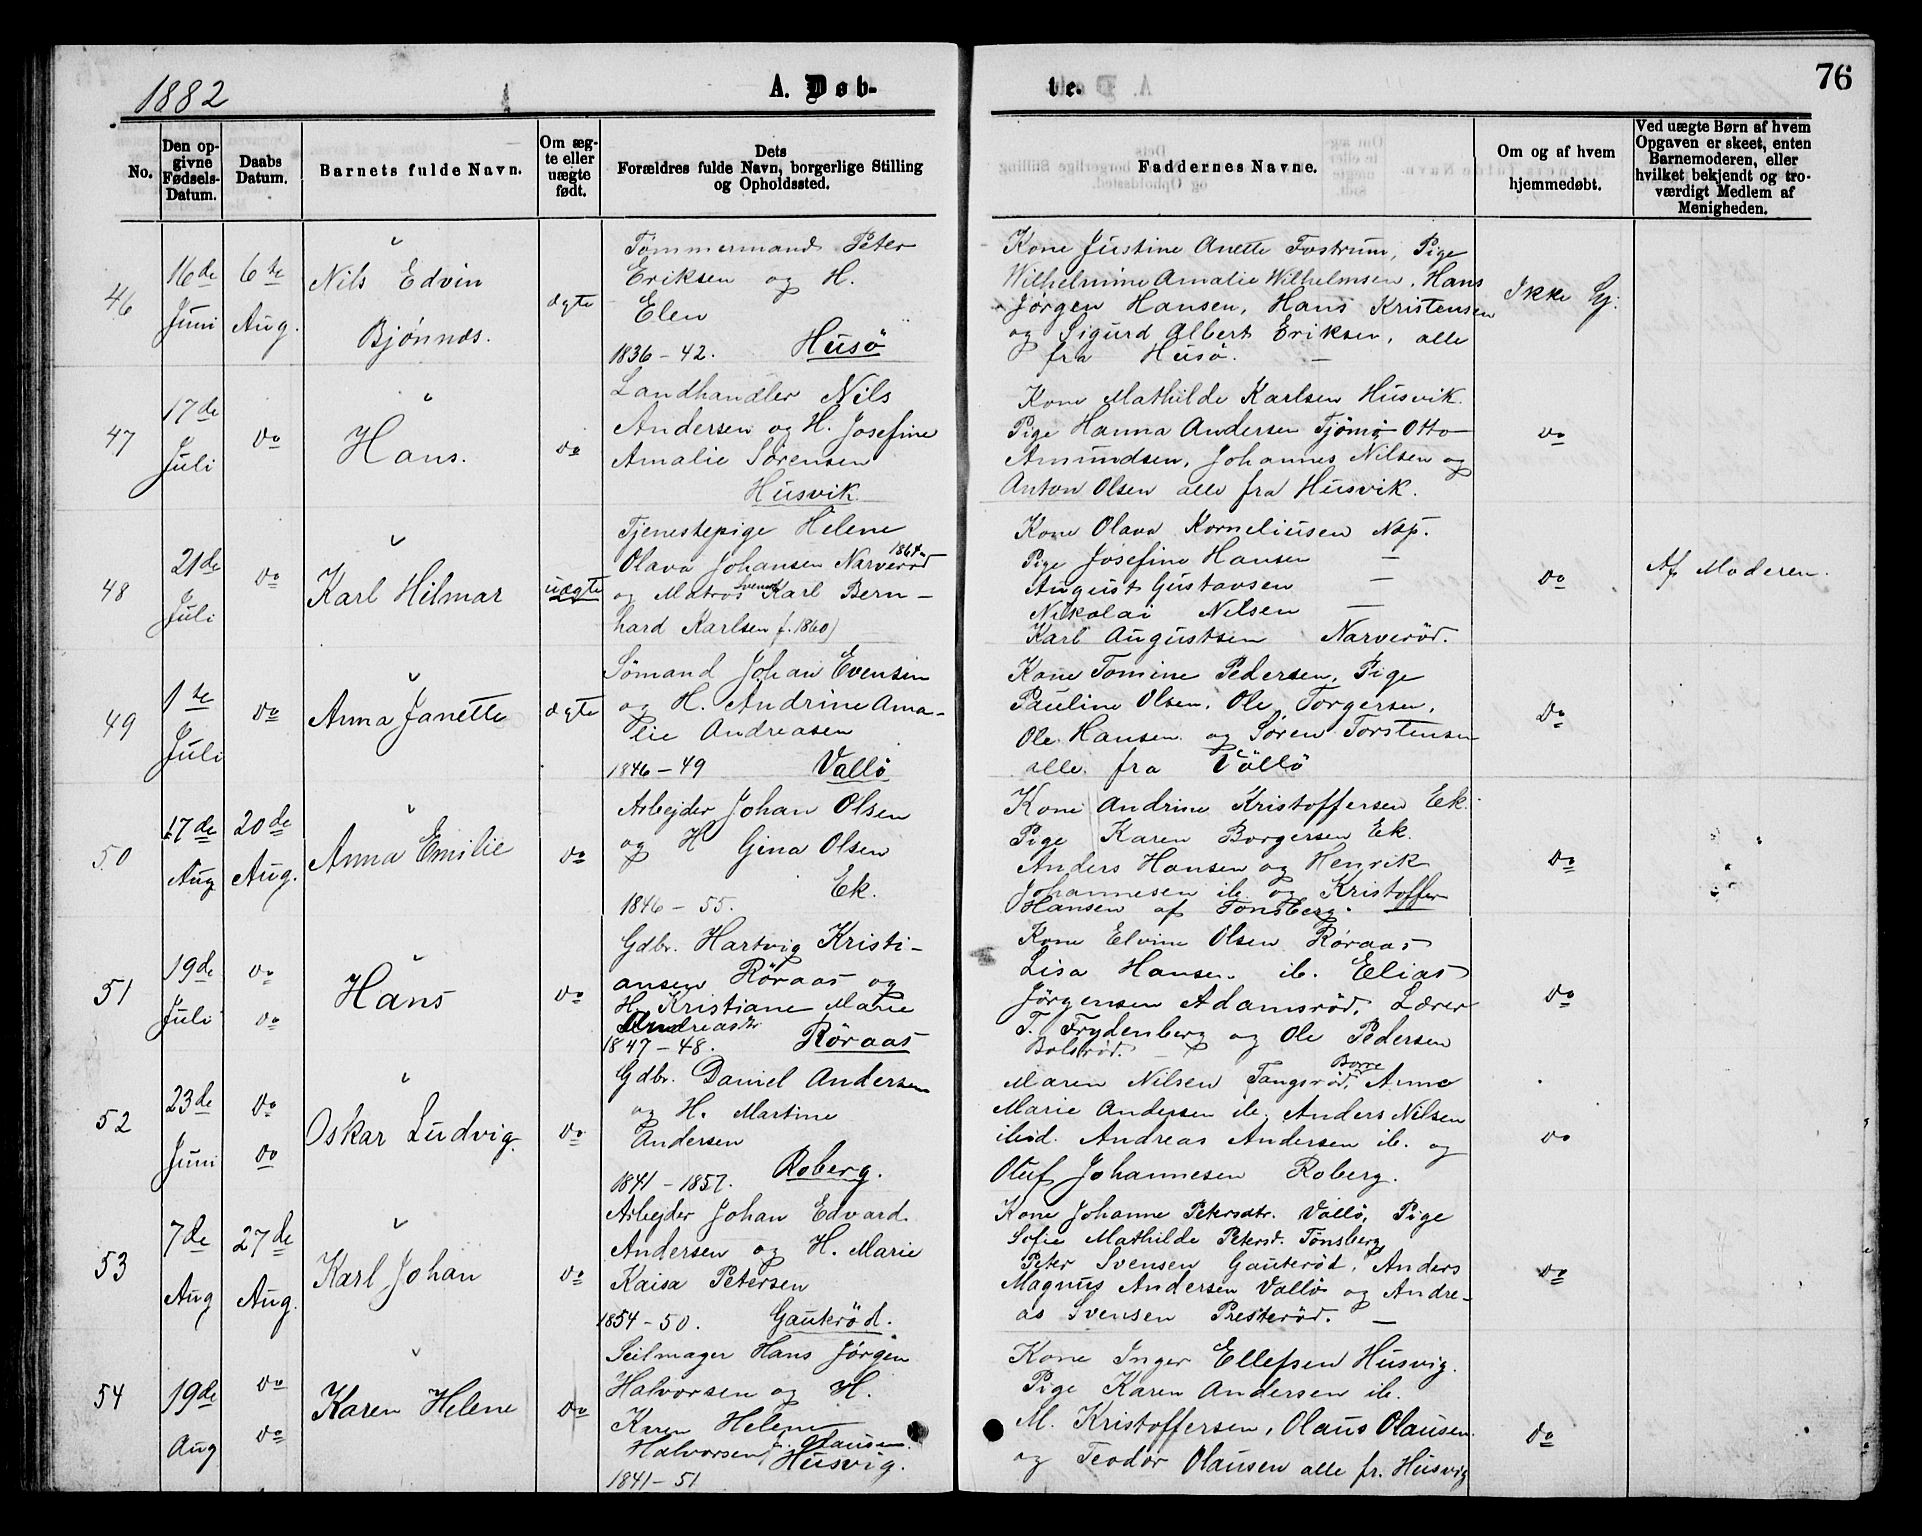 1882
A. Døb-
te.
76
No.
Den op-
givne
Fødsels-
Datum.
Daabs
Datum.
Barnets fulde Navn.
Om æg-
te eller
uægte
født.
Dets
Forældres fulde Navn, borgerlige Stilling
og Opholdssted.
Faddernes Navne.
Om og af hvem
hjemmedøbt.
Ved uægte Børn af hvem
Opgaven er skeet, enten
Barnemoderen, eller
hvilket bekjendt og tro-
værdigt Medlem af
Menigheden.
46
16de
Juni
6te
Aug.
Nils Edvin
Bjønnes.
ægte
Tømmermand Peter
Eriksen og H.
Elen
1836 - 42. Husö
Kone Justine Anette Fostrum, Pige
Wilhelmine Amalie Wilhelmsen, Hans
Jörgen Hansen, Hans Kristensen
og Sigurd Albert Eriksen, alle
fra Husö. —
Ikke Hj.
47
17de
Juli
do
Hans.
do
Landhandler Nils
Andersen og H. Josefine
Amalie Sörensen
Husvik
Kone Mathilde Karlsen Husvik.
Pige Hanna Andersen Tjömö Otto
Amundsen, Johannes Nilsen og
Anton Olsen alle fra Husvik.
do
48
21de
Juli
do
Karl Hilmar
uægte
Tjenestepige Helene
Olava Johansen Narveröd 1864
og Matros Svensk Karl Bern-
hard Karlsen f. 1860)
Kone Olava Korneliusen Nøp.
Pige Josefine Hansen —
August Gustavsen —
Nikolai Nilsen —
Karl Augustsen Narveröd.
do
Af Moderen.
49
1te
Juli
do
Anna Janette
ægte
Sömand Johan Evensen
og H. Andrine Ama-
lie Andreasen
1846 - 49 Vallö
Kone Tomine Pedersen, Pige
Pauline Olsen, Ole Torgersen,
Ole Hansen og Sören Torstensen
alle fra Vallö
do
50
17de
Aug
20de
Aug.
Anna Emilie
do
Arbejder Johan Olsen
og H Gina Olsen
Ek.
1846 - 55.
Kone Andrine Kristoffersen Ek.
Pige Karen Borgersen Ek.
Anders Hansen og Henrik
Johannesen ib. og Kristoffer
Hansen af Tönsberg.
do
51
19de
Juli
do
do
Hans
do
Gdbr. Hartvig Kristi-
ansen Röraas og
H. Kristiane Marie
Andreasdtr
1847 - 48. Röraas
Kone Elvine Olsen Röraas
Lisa Hansen ib. Elias
Jörgensen Adamsröd, Lærer
T. Frydenberg og Ole Pedersen
Bolsröd.
do
52
23de
Juni
do
do
Oskar Ludvig.
do
Gdbr. Daniel Andersen
og H. Martine
Andersen
1841 - 1857. Roberg.
Maren Nilsen Tangsröd, Borre Anne
Marie Andersen ib. Anders Nilsen
ibid. Andreas Andersen ib. og
Oluf Johannesen Roberg.
do
53
7de
Aug
27de
Aug.
Karl Johan
do
Arbejder Johan Edvard
Andersen og H. Marie
Kaisa Petersen
1854 - 50. Gauteröd.
Kone Johanne Petersdtr. Vallö, Pige
Sofie Mathilde Petersd. Tönsberg
Peter Svensen Gauteröd, Anders
Magnus Andersen Vallö og Andre-
as Svensen Presteröd. —
do
54
19de
Aug
do
do
Karen Helene
do
Seilmager Hans Jörgen
Halvorsen og H.
Karen Helene
Halvorsen f. Olausen.
Husvig.
1841 - 51
Kone Inger Ellefsen Husvig.
Pige Karen Andersen ib.
M. Kristoffersen, Olaus Olausen
og Teodor Olausen alle fr. Husvig
do